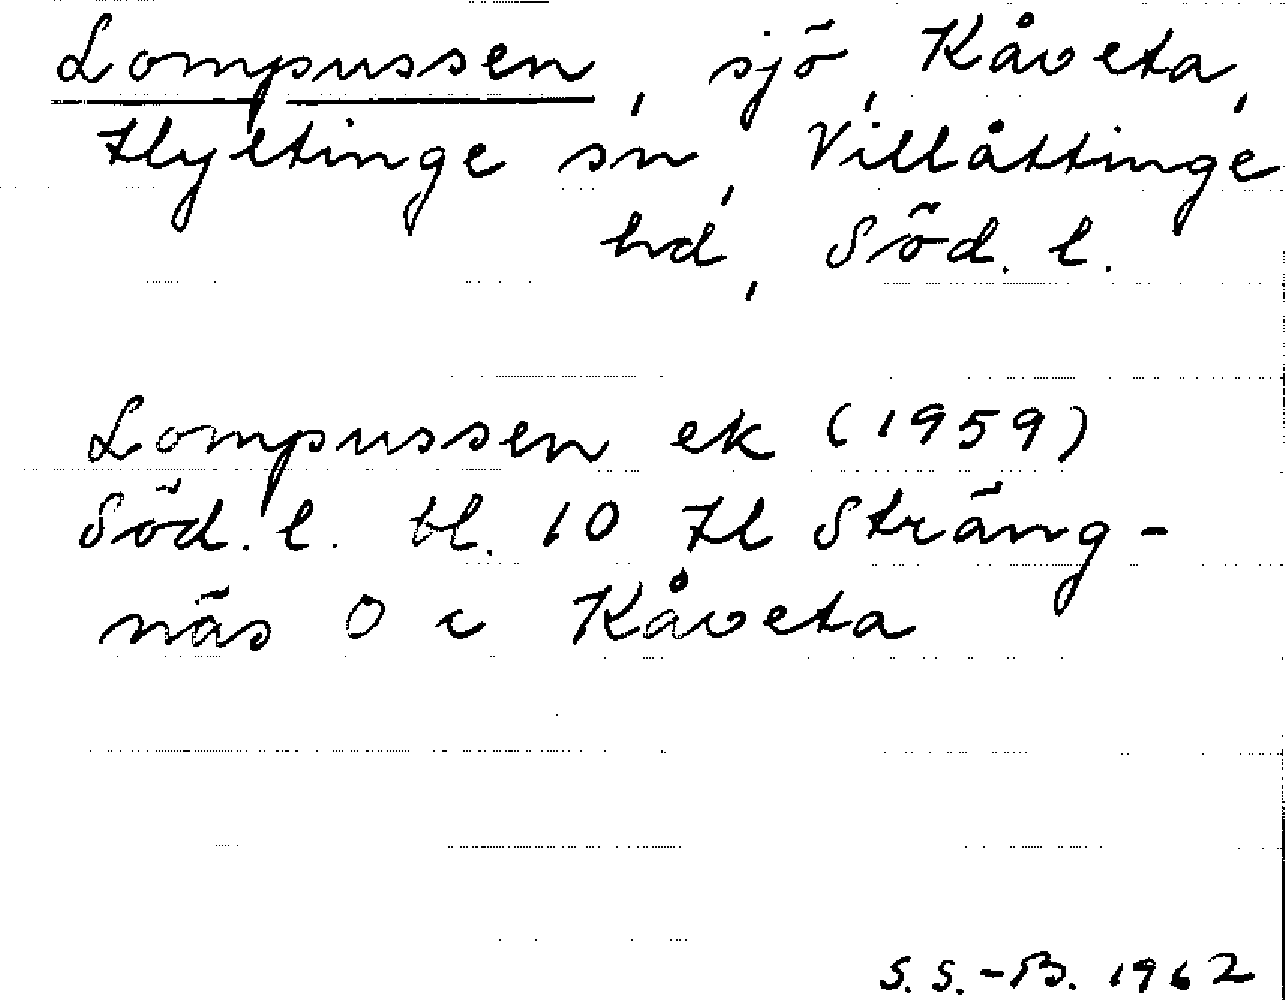 Lompussen, sjö, Kåveta,
Hyltinge sn, Villåttinge
hd, Söd. l.
Lompussen ek (1959)
Söd. l. bl. 10 Hl Sträng-
näs O c Kåveta
S. S.-B. 1962